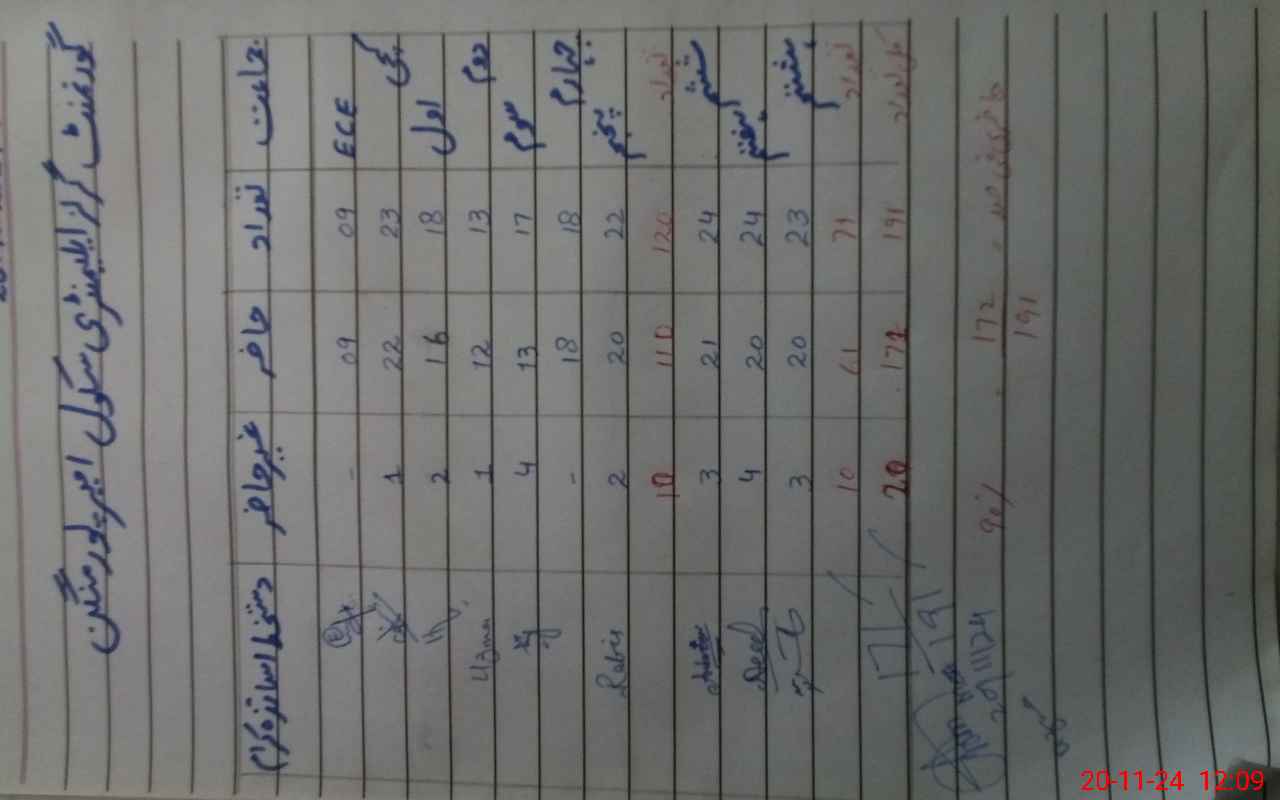 گورنمنٹ گرلز ایلیمنٹری سکول امیر پور منگن
جماعت تعداد حاضر غیر حاضر دستخط اساتذہ کرام
ECE 09 09 -
کچی 23 22 1
اول 18 16 2
دوم 13 12 1 Uzma
سوم 17 13 4
چہارم 18 18 -
پنجم 22 20 2 Rabia
تعداد 120 110 10
ششم 24 21 3
ہفتم 24 20 4
ہشتم 23 20 3
تعداد 71 61 10
کل تعداد 191 171 20 171/191
20/11/24
172 90%
191
20-11-24 12:09